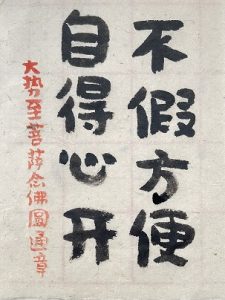 不假方便
自得心开
大势至菩萨念佛圆通章